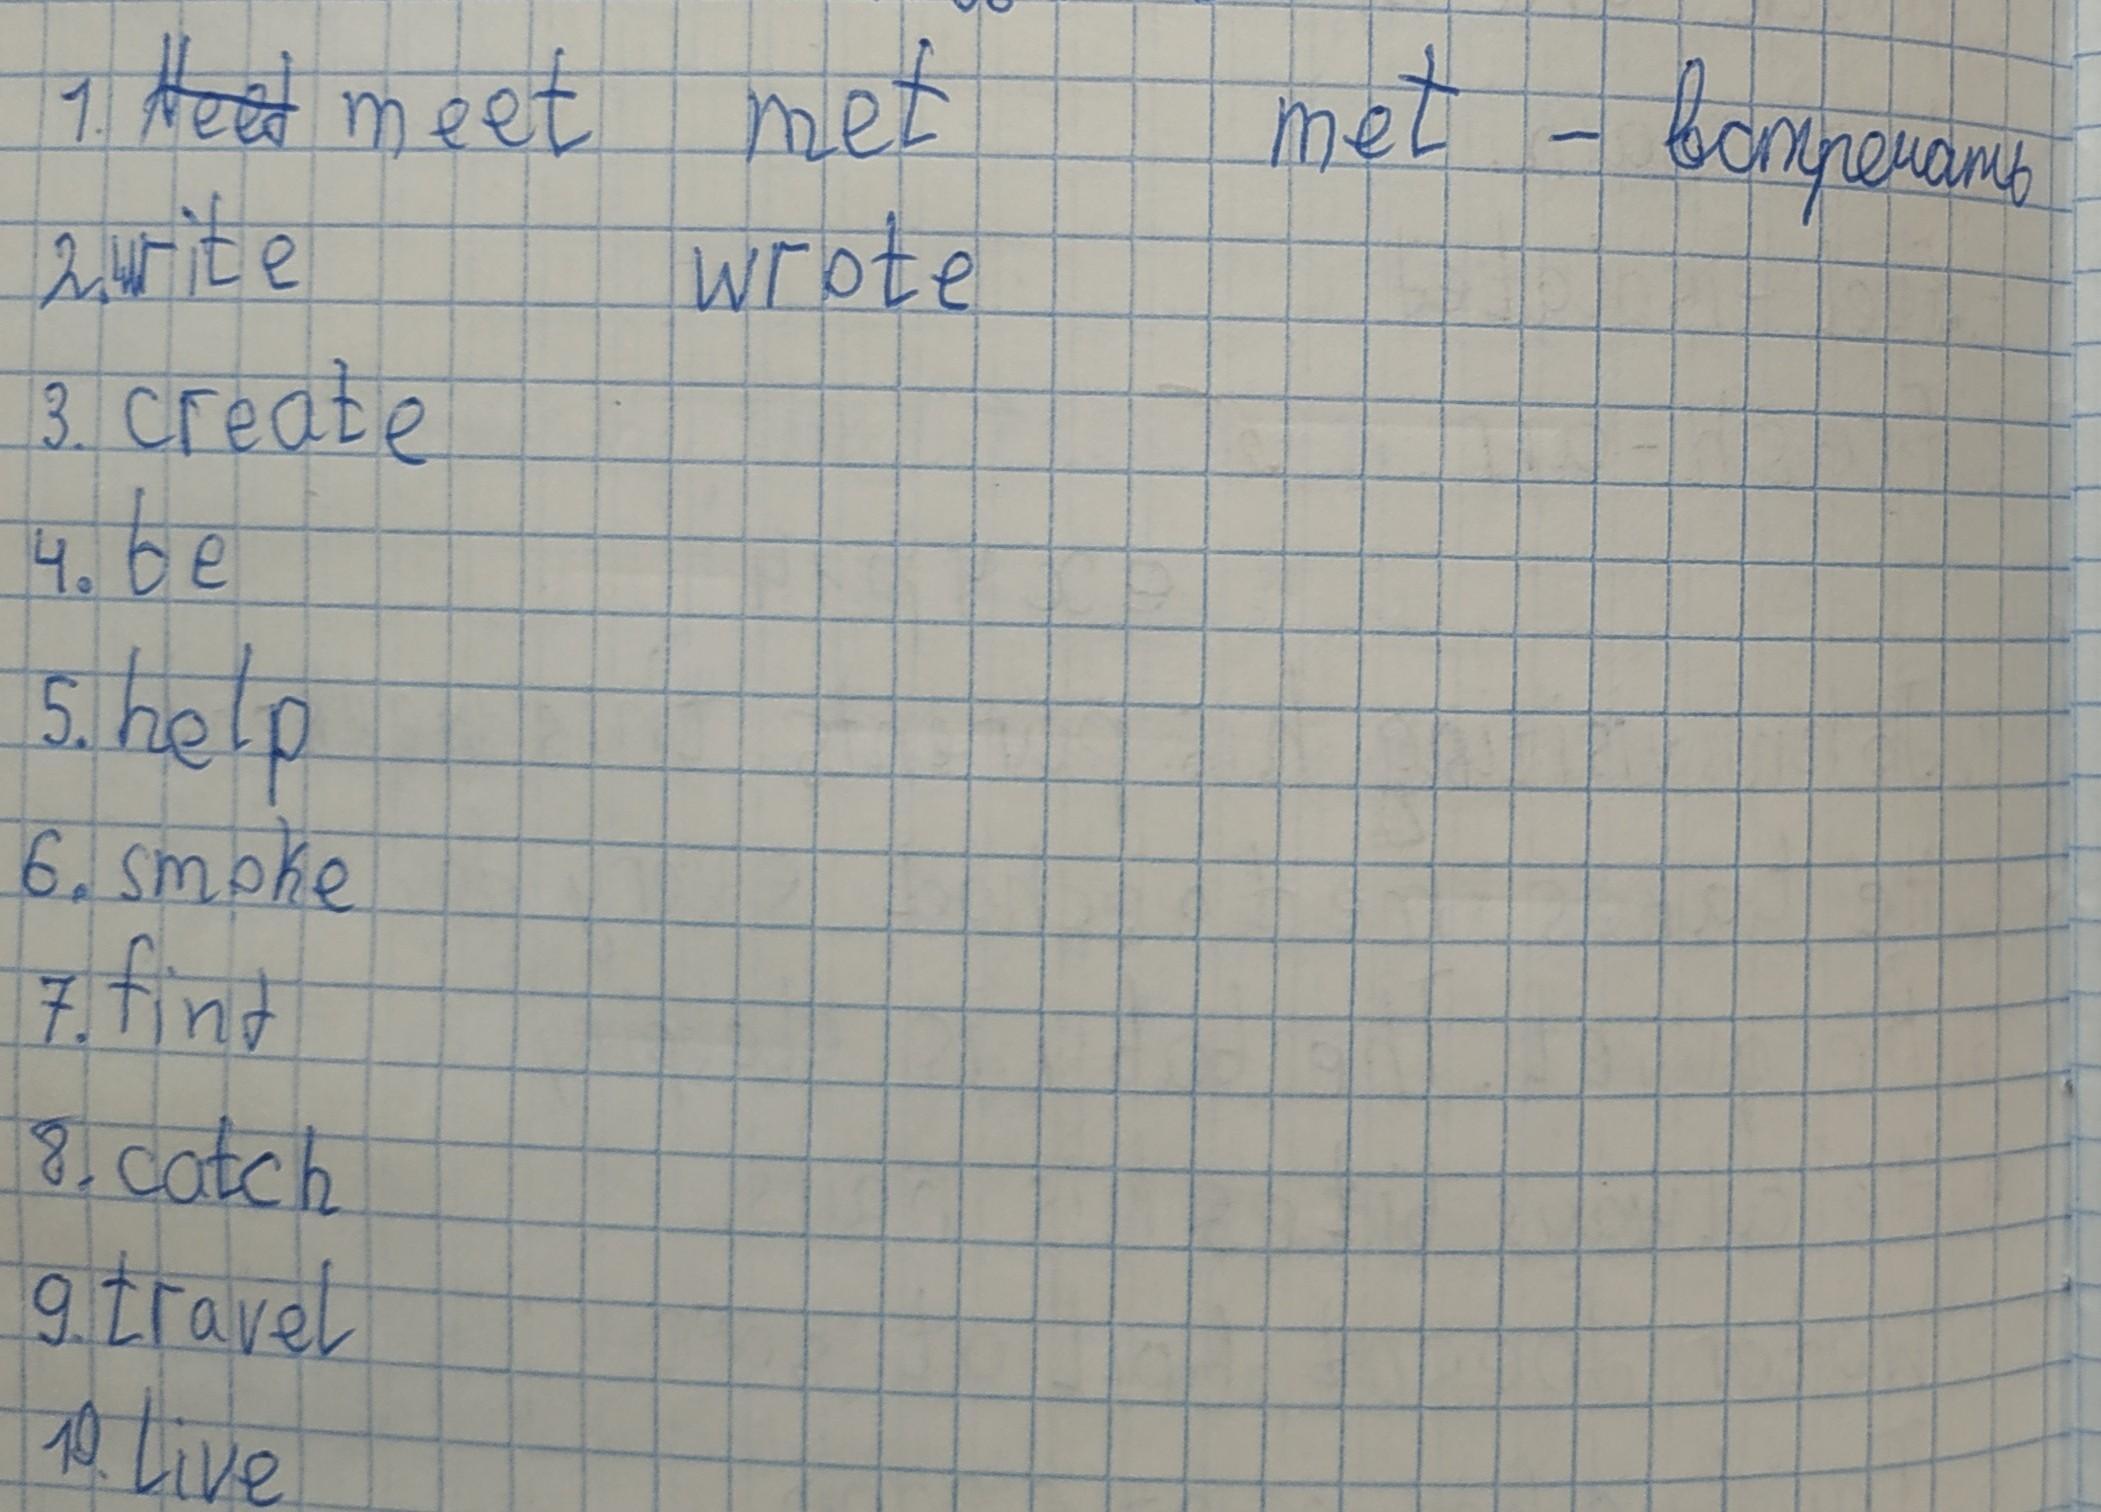 1. meet met met - встречать
2. write wrote
3. create
4. be
5. help
6. smoke
7. find
8. catch
9. travel
10. live